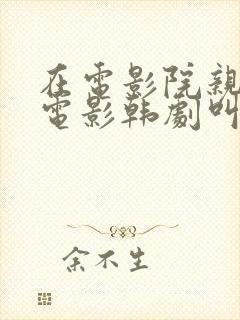 在電影院親
電影韩劇叫
余不生